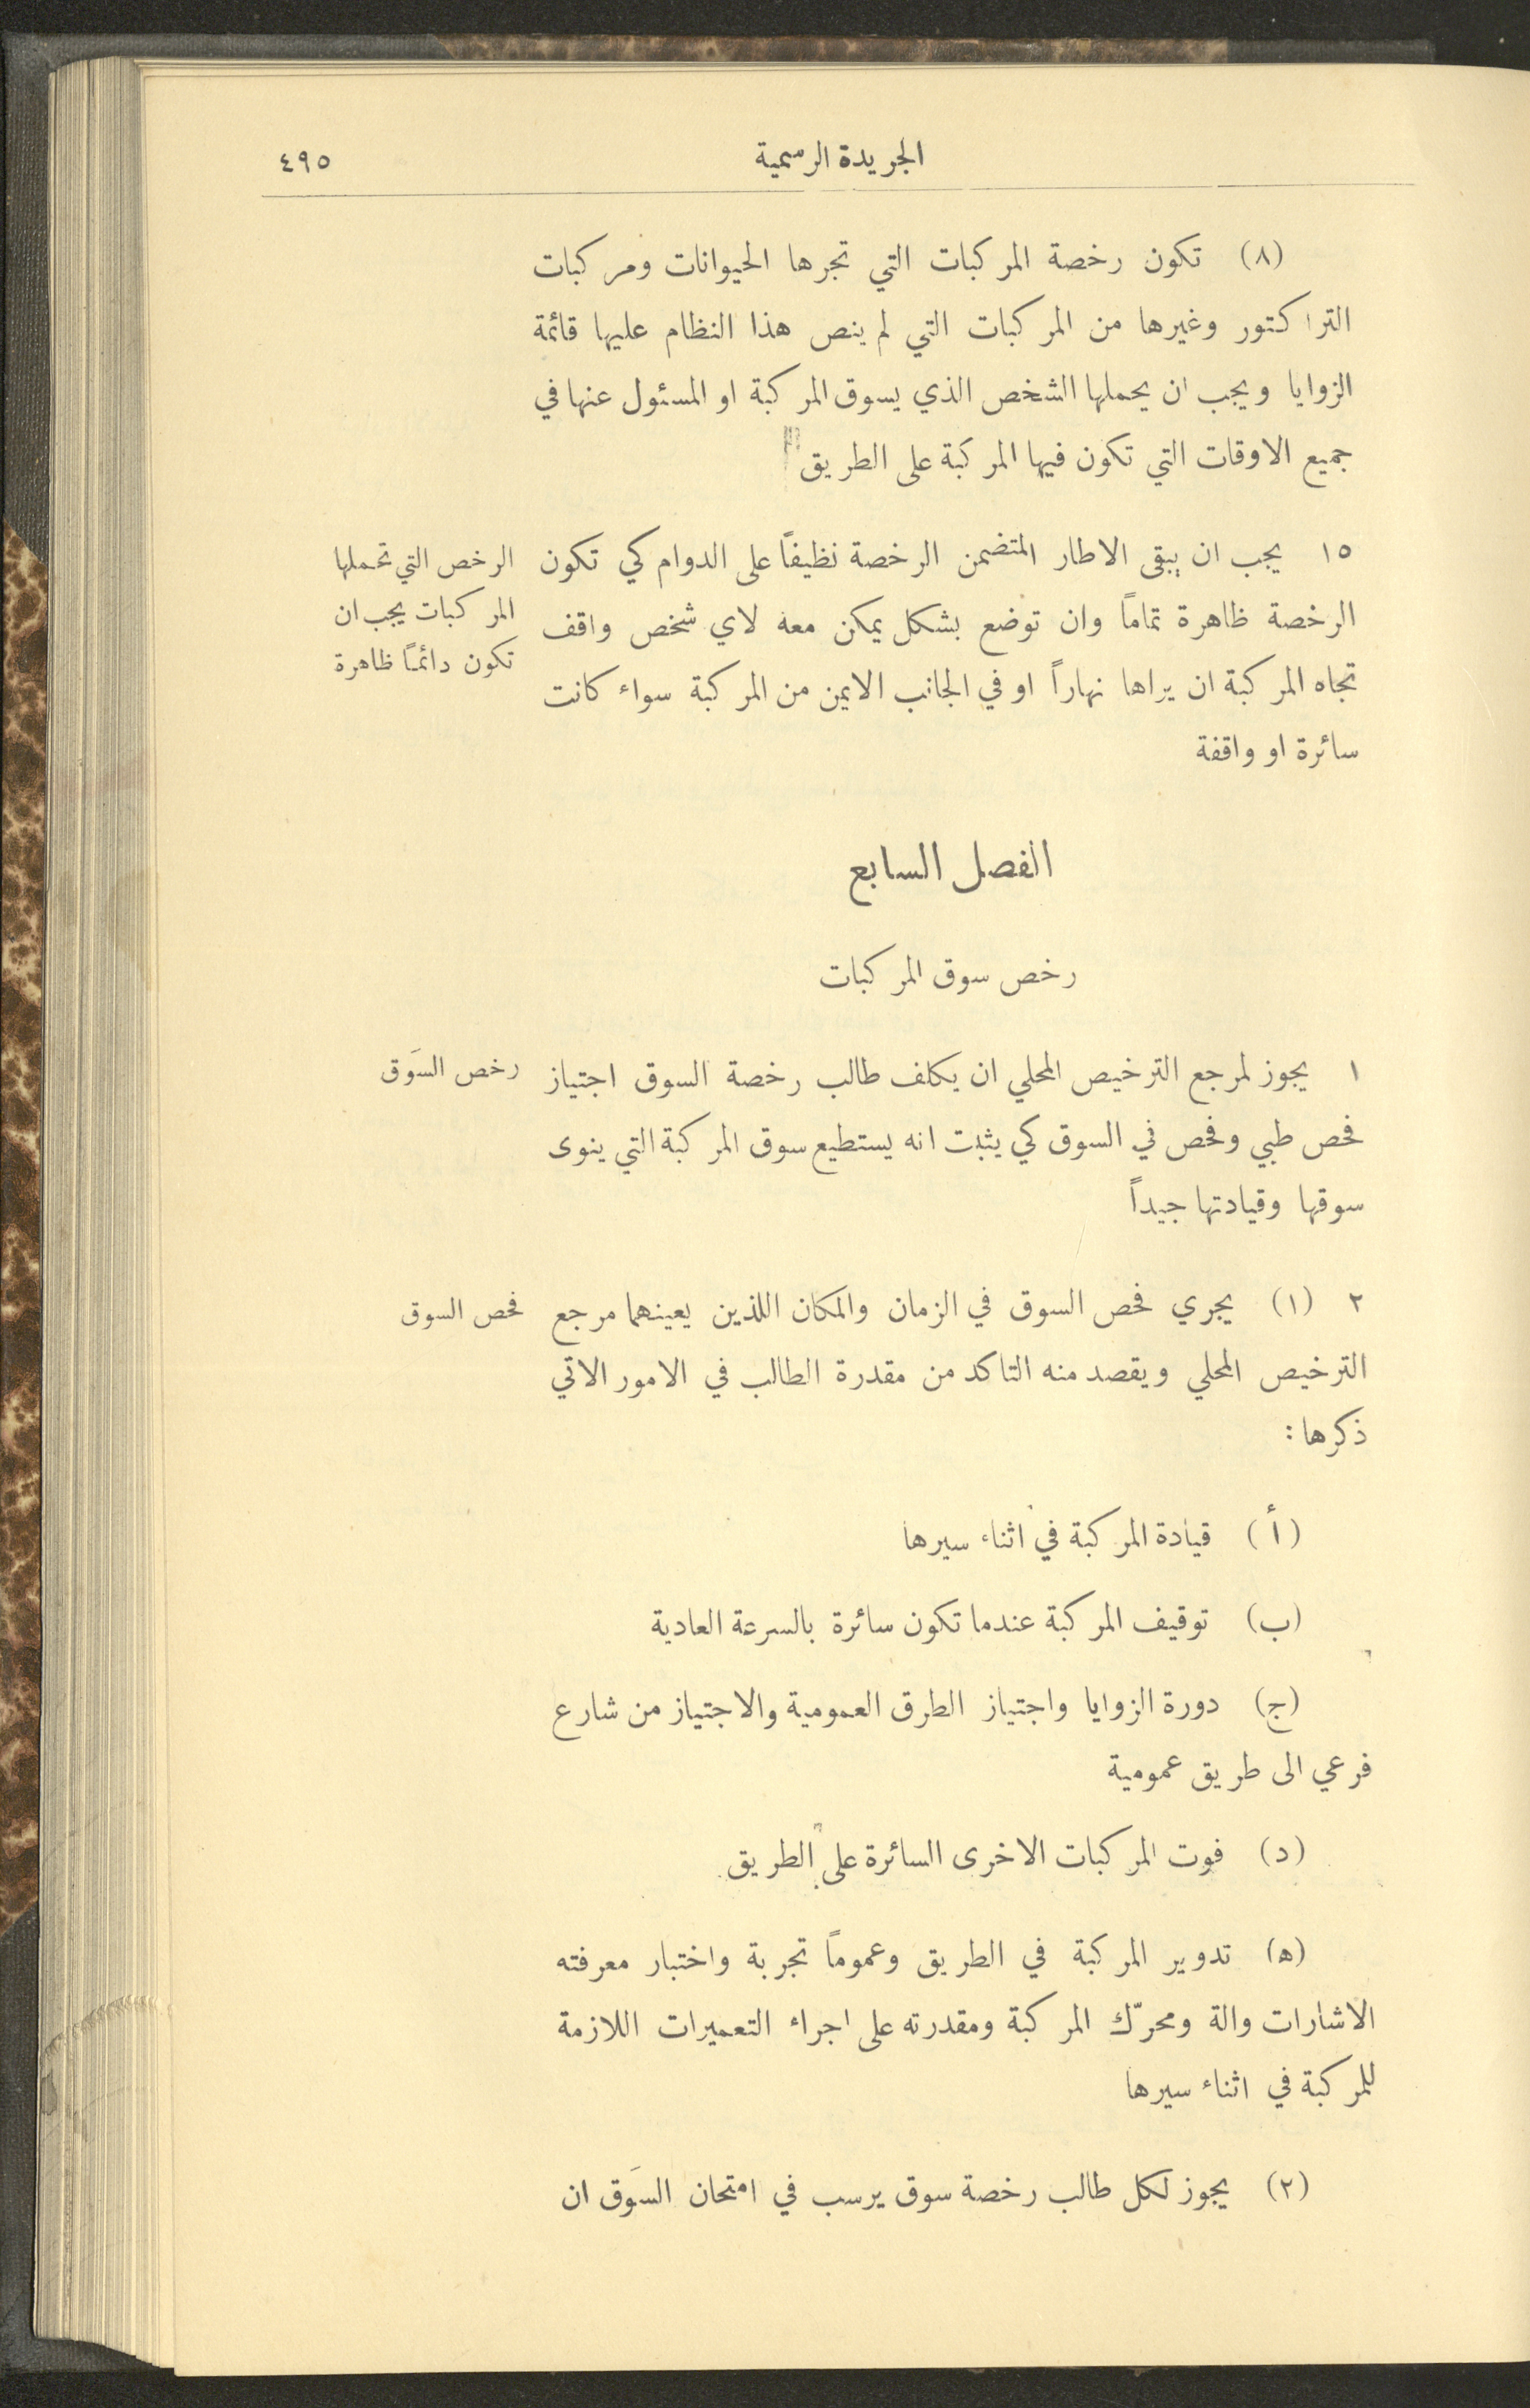 الجريدة الرسمية
٤٩٥
(٨) تكون رخصة المركبات التي تجرها الحيوانات ومركبات
التراكتور وغيرها من المركبات التي لم ينص هذا النظام عليها قائمة
الزوايا ويجب ان يحملها الشخص الذي يسوق المركبة او المسئول عنها في
جميع الاوقات التي تكون فيها المركبة على الطريق
١٥ يجب ان يبقى الاطار المتضمن الرخصة نظيفاً على الدوام كي تكون
الرخصة ظاهرة تماماً وان توضع بشكل يمكن معه لاي شخص واقف
تجاه المركبة ان يراها نهاراً او في الجانب الايمن من المركبة سواء كانت
سائرة او واقفة
الرخص التي تحملها
المركبات يجب ان
تكون دائماً ظاهرة
الفصل السابع
رخص سوق المركبات
١ يجوز لمرجع الترخيص المحلي ان يكلف طالب رخصة السوق اجتياز
فحص طبي وفحص في السوق كي يثبت انه يستطيع سوق المركبة التي ينوى
سوقها وقيادتها جيداً
رخص السَوق
٢ (١) يجري فحص السوق في الزمان والمكان اللذين يعينهما مرجع
الترخيص المحلي ويقصد منه التاكد من مقدرة الطالب في الامور الاتي
ذكرها :
فحص السوق
(أ) قيادة المركبة في اثناء سيرها
(ب) توقيف المركبة عندما تكون سائرة بالسرعة العادية
(ج) دورة الزوايا واجتياز الطرق العمومية والاجتياز من شارع
فرعي الى طريق عمومية
(د) فوت المركبات الاخرى السائرة على الطريق
(ه) تدوير المركبة في الطريق وعموماً تجربة واختبار معرفته
الاشارات والة ومحرّك المركبة ومقدرته على اجراء التعميرات اللازمة
للمركبة في اثناء سيرها
(٢) يجوز لكل طالب رخصة سوق يرسب في امتحان السَوق ان